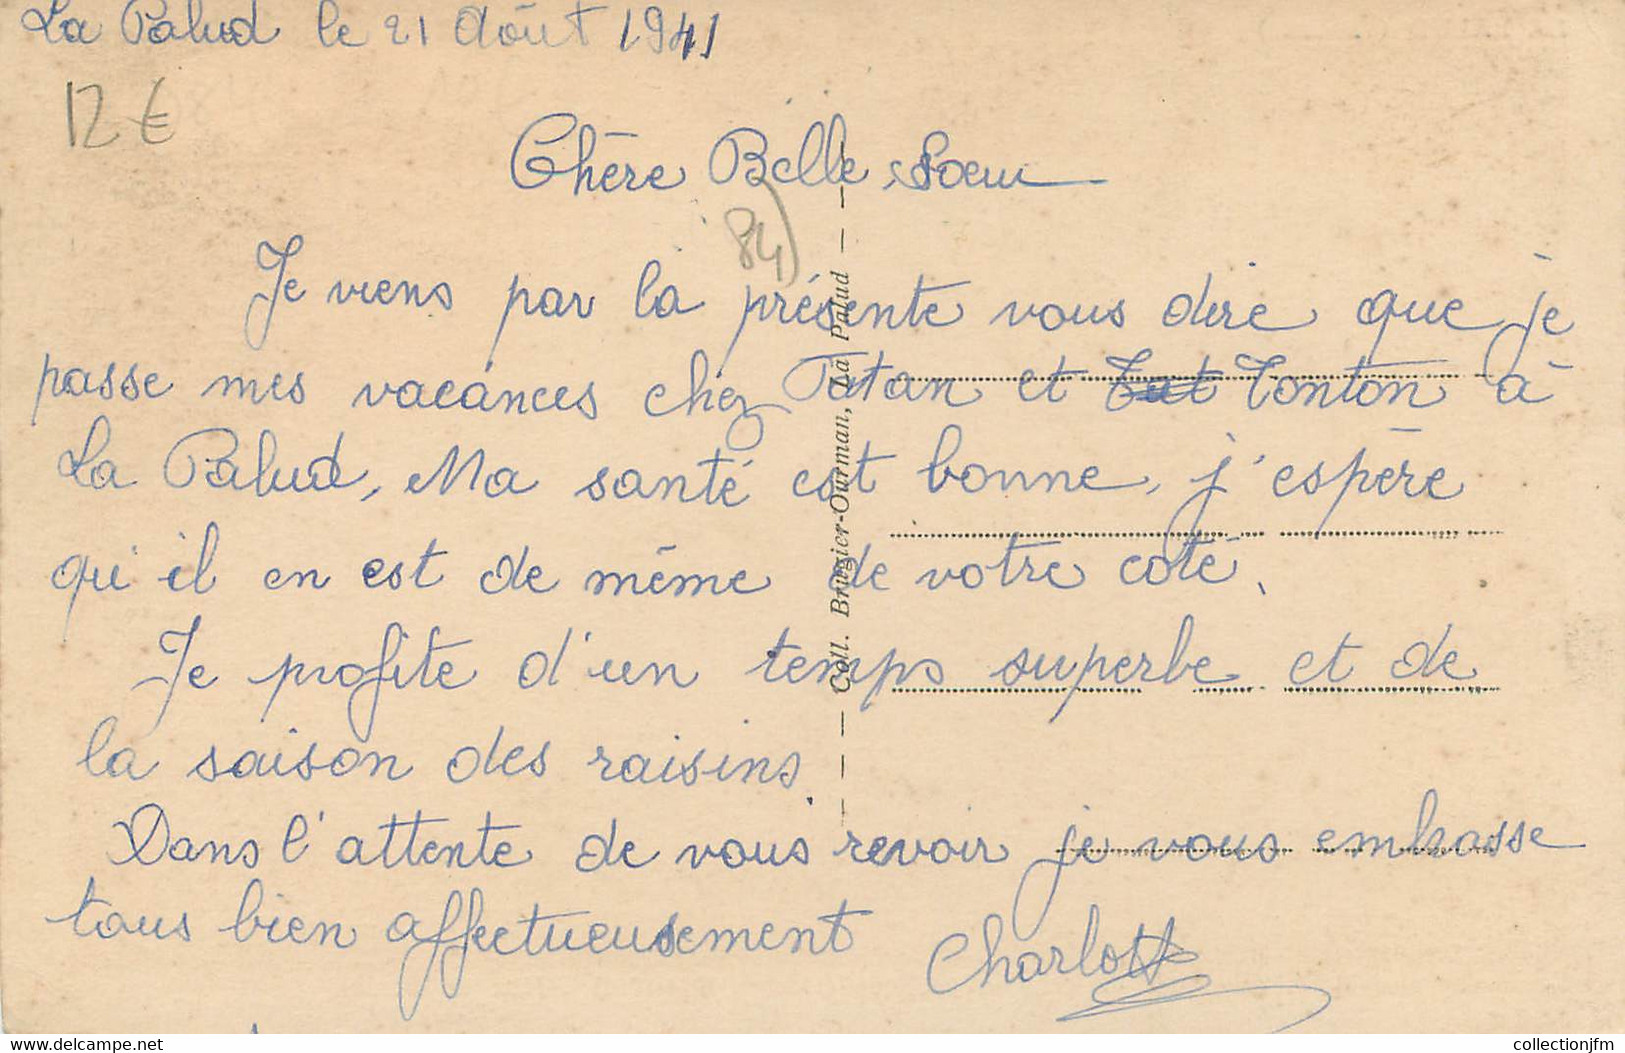 La Palud le 21 Août 1941
12 €
Chère Belle Soeur
84)
Je viens par la présente vous dire que je
passe mes vacances chez Tatan et Tat Tonton à
La Palud, Ma santé est bonne, j'espère
qu'il en est de même de votre coté,
Je profite d'un temps superbe et de
la saison des raisins.
Dans l'attente de vous revoir je vous embrasse
tous bien affectueusement
Charlotte
Coll. Brugier-Ourman, La Palud
www.delcampe.net
collectionjfm